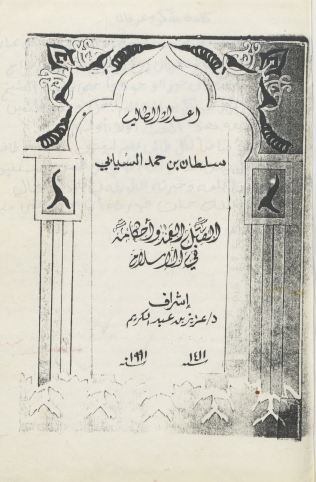 إعداد الطالب
سلطان بن حمد السيابي
القتل العمد وأحكامه
في الإسلام
إشراف
د/ عزيز بن عبد الكريم
سنة ١٤١١ سنة ١٩٩١